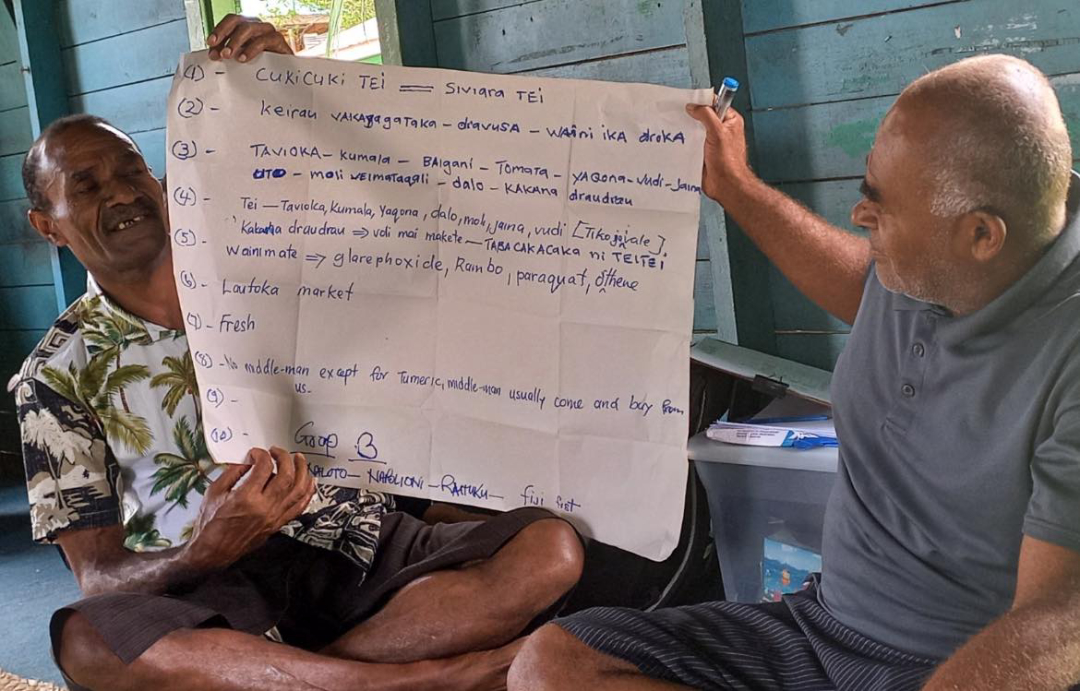 (1) - CUKiCUKi TEi = Siviara TEi
(2) - Keirau - dravuSA - WAiNi iKA droKA
(3) - TAViOKA - Kumala - BAigani - Tomata - YAQona - Vudi - Jaina
UTO - moli VEimaTaqali - dalo - KAKANA draudrau
(4) - Tei - Tavioka, Kumala, Yaqona, dalo, moli, jaina, vudi
(5) - Kakana draudrau ⇒ voli mai makete - TABACAKACAKA ni TEiTEi
Wainimate ⇒ glarephoxide, Rambo, paraquat, Othene
(6) - Lautoka market
(7) - Fresh
(8) - No middle-man except for Tumeric, middle-man usually come and buy from
us-
(9) -
(10) -
Group B
NAPOLIONI - RATUKU - fiji fist